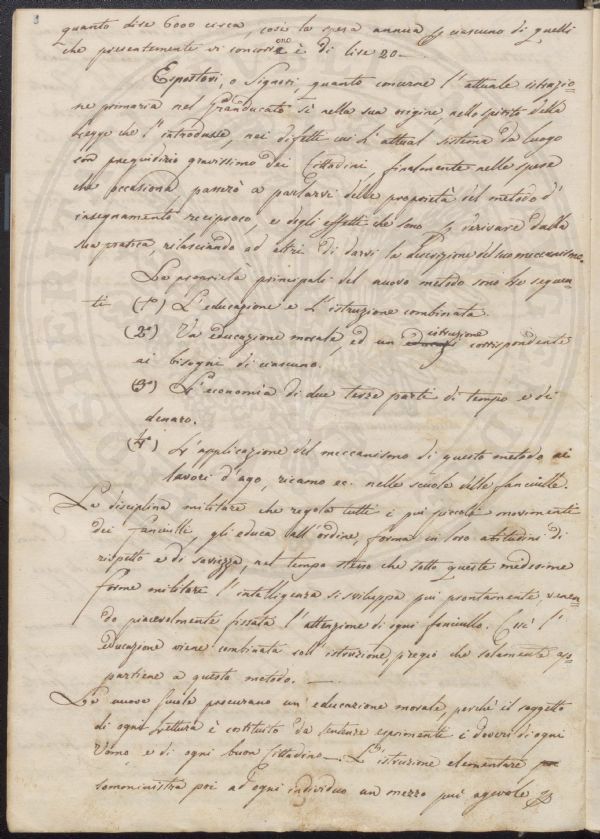 8
quanto dire 6000 circa, così la spesa annua p ciascuno di quelli
che presentemente vi concorrono è di lire 20 —
Espostovi, o Signori, quanto concerne l'attuale istruzio=
ne primaria nel Granducato sì nella sua origine, nello spirito della
Legge che l'introdusse, nei difetti cui l'attual sistema dà luogo
con pregiudizio gravissimo dei Cittadini, finalmente nelle spese
che occasiona passerò a parlarvi delle proprietà del metodo d'
insegnamento reciproco, e degli effetti che sono p derivare dalla
sua pratica, rilasciando ad altri di darvi la descrizione del suo meccanismo.
Le proprietà principali del nuovo metodo sono le seguen-
ti (1°) L'educazione e L'istruzione combinata.
(2°) Un educazione morale, ed un educazi istruzione corrispondente
ai bisogni di ciascuno.
(3°) L'economia di due terze parti di tempo e di
denaro.
(4°) L'applicazione del meccanismo di questo metodo ai
lavori d'ago, ricamo ec. nelle scuole delle fanciulle.
La disciplina militare che regola tutti i più piccoli movimenti
dei fanciulli, gli educa all'ordine, forma in loro abitudini di
rispetto e di saviezza, nel tempo stesso che sotto queste medesime
forme militare l'intelligenza si sviluppa più prontamente, venen-
do piacevolmente fissata l'attenzione di ogni fanciullo. Così l'
educazione viene combinata coll'istruzione, pregio che solamente ap=
partiene a questo metodo. —
Le nuove scuole procurano un'educazione morale, perchè il soggetto
di ogni Lettura è costituito da sentenze esprimenti i doveri di ogni
Uomo e di ogni buon Cittadino —. L'istruzione elementare
somministra poi ad ogni individuo un mezzo più agevole p